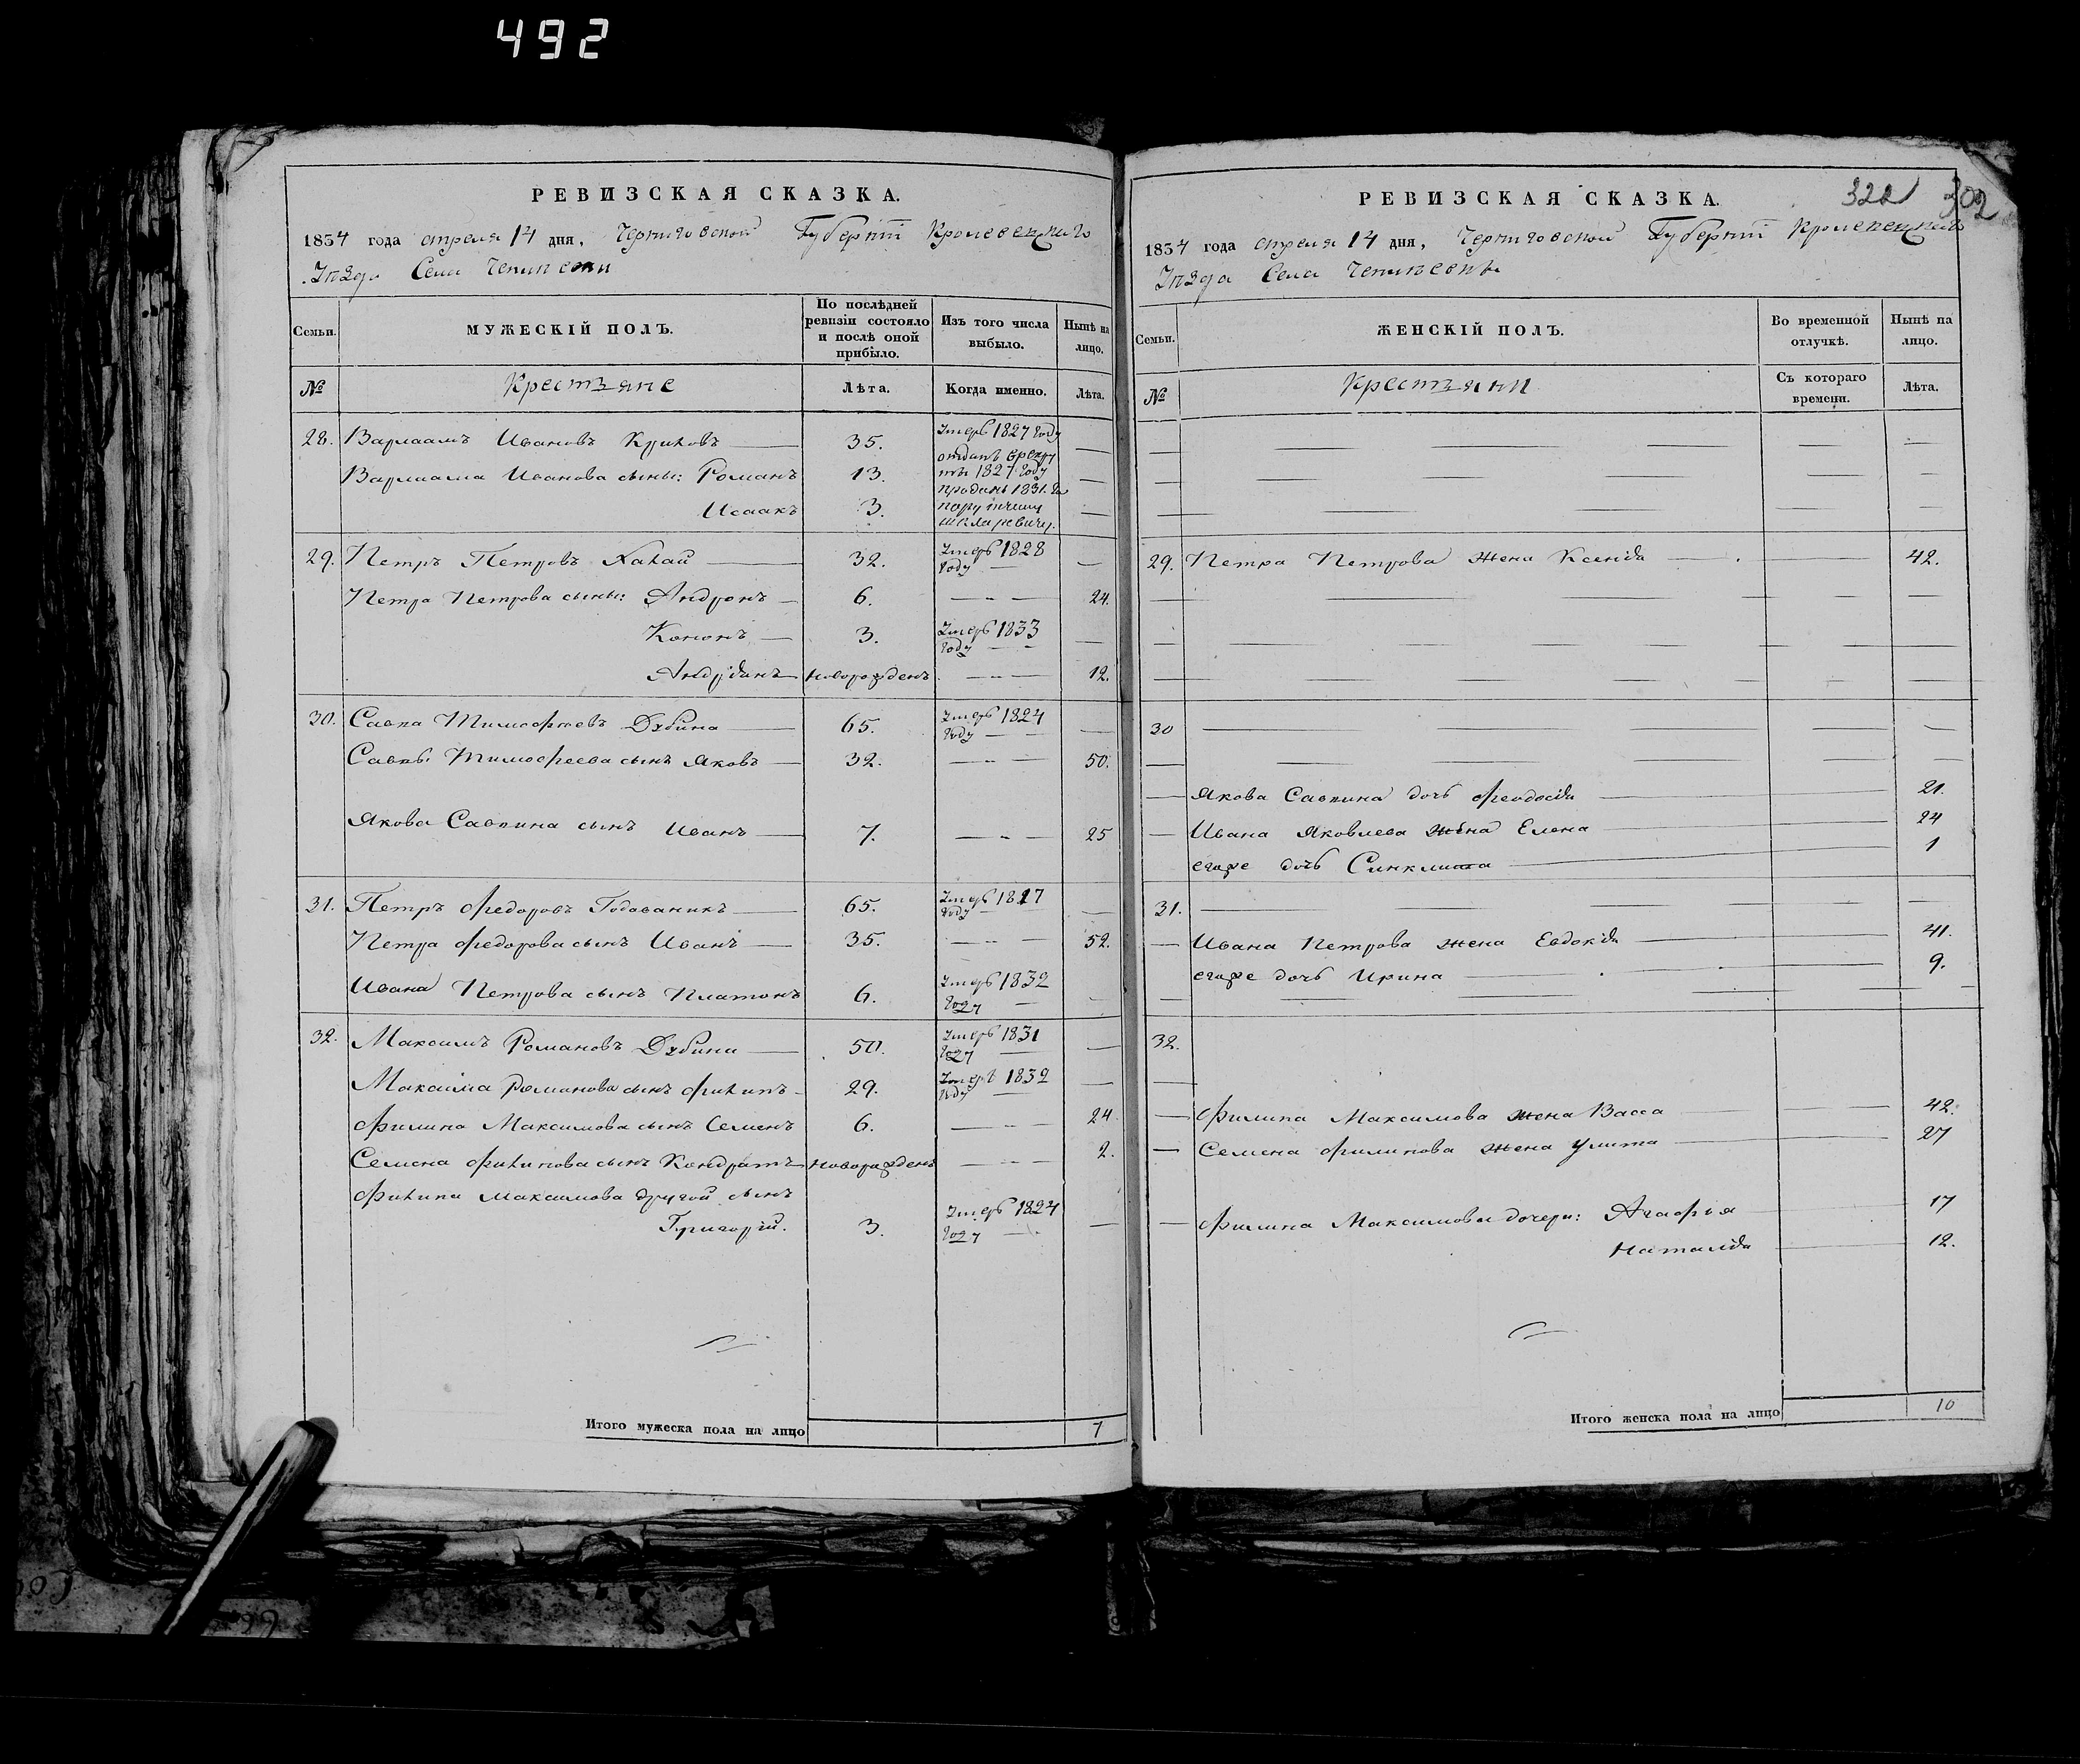 492
РЕВИЗСКАЯ СКАЗКА.
1834 года апреля 14 дня, Черниговской Губерніи Кролевецкаго
Уѣзда Села
Семьи.
МУЖЕСКІЙ ПОЛЪ.
По послѣдней ревизіи состояло и послѣ оной прибыло.
Изъ того числа выбыло.
Нынѣ на лицо.
№
Крестьяне
Лѣта.
Когда именно.
Лѣта.
28. Варлаамъ Ивановъ 35. Умеръ 1827 году
Варлаама Иванова сыны: Романъ 13. отданъ в рекруты 1827 году
Исаакъ 3. проданъ 1831 го
29. Петръ Петровъ 32. Умеръ 1828 году
Петра Петрова сыны: Андронъ 6. 24.
Кононъ 3. Умеръ 1833 году
Андріянъ новорожденъ 12.
30. Савва Тимофѣевъ Дубина 65. Умеръ 1824 году
Саввы Тимофеева сынъ Яковъ 32. 50.
Якова Саввина сынъ Иванъ 7. 25
31. Петръ Федоровъ Годованикъ 65. Умеръ 1817 году
Петра Федорова сынъ Иванъ 35. 52.
Ивана Петрова сынъ Платонъ 6. Умеръ 1832 году
32. Максимъ Романовъ Дубина 50. Умеръ 1831 году
Максима Романова сынъ Филипъ 29. Умеръ 1832 году
Филипа Максимова сынъ Семенъ 6. 24
Семена Филипова сынъ Кондратъ новорожденъ 2.
Филипа Максимова другой сынъ
Григорій. 3. Умеръ 1824 году
Итого мужеска пола на лицо 7
322 302
РЕВИЗСКАЯ СКАЗКА.
1834 года апреля 14 дня, Черниговской Губерніи Кролевецкаго
Уѣзда Села
Семьи.
ЖЕНСКІЙ ПОЛЪ.
Во временной отлучкѣ.
Нынѣ на лицо.
№
Крестьянки
Съ котораго времени.
Лѣта.
29. Петра Петрова жена Ксенія 42.
30
Якова Саввина дочь Феодосія 21.
Ивана Яковлева жена Елена 24
егоже дочь Синклита 1
31.
Ивана Петрова жена Евдокія 41.
егоже дочь Ирина 9.
32.
Филипа Максимова жена Васса 42.
Семена Филипова жена Улита 27
Филипа Максимова дочери: Агафья 17
Наталія 12.
Итого женска пола на лицо 10